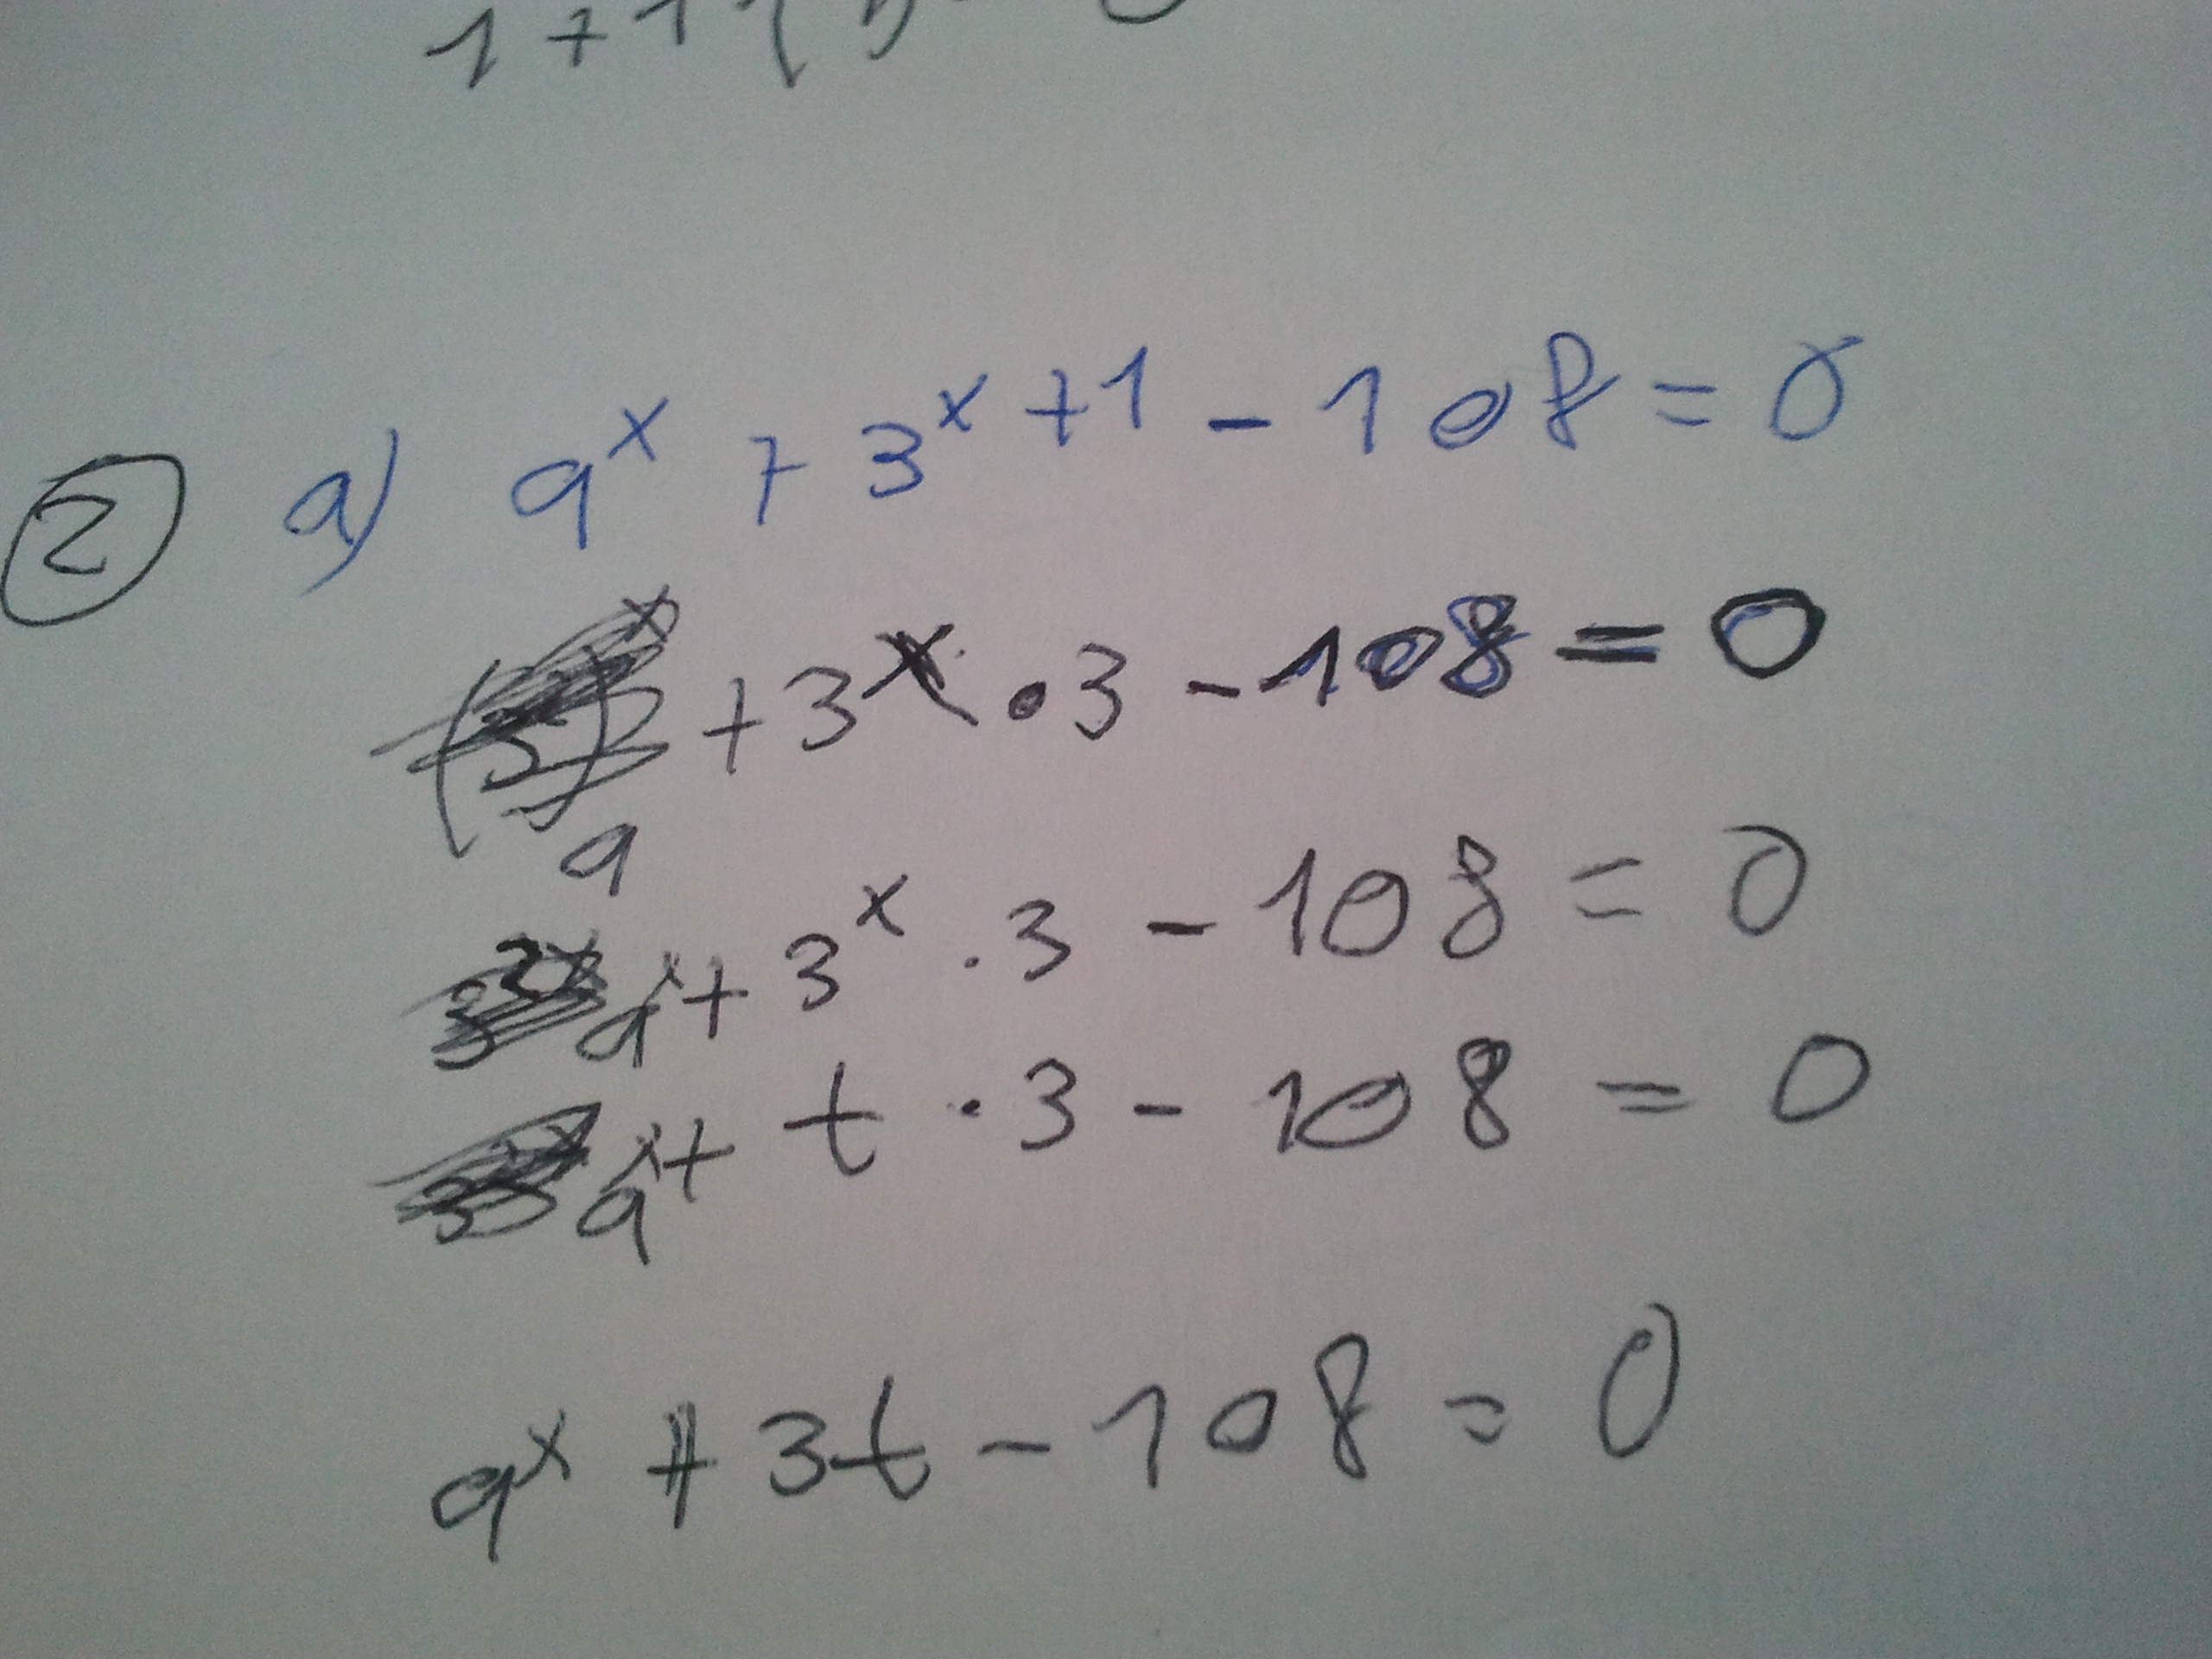 ② a) 9^x + 3^x+1 - 108 = 0
+ 3^x · 3 - 108 = 0
9
9^x + 3^x · 3 - 108 = 0
9^x + t · 3 - 108 = 0
9^x + 3t - 108 = 0